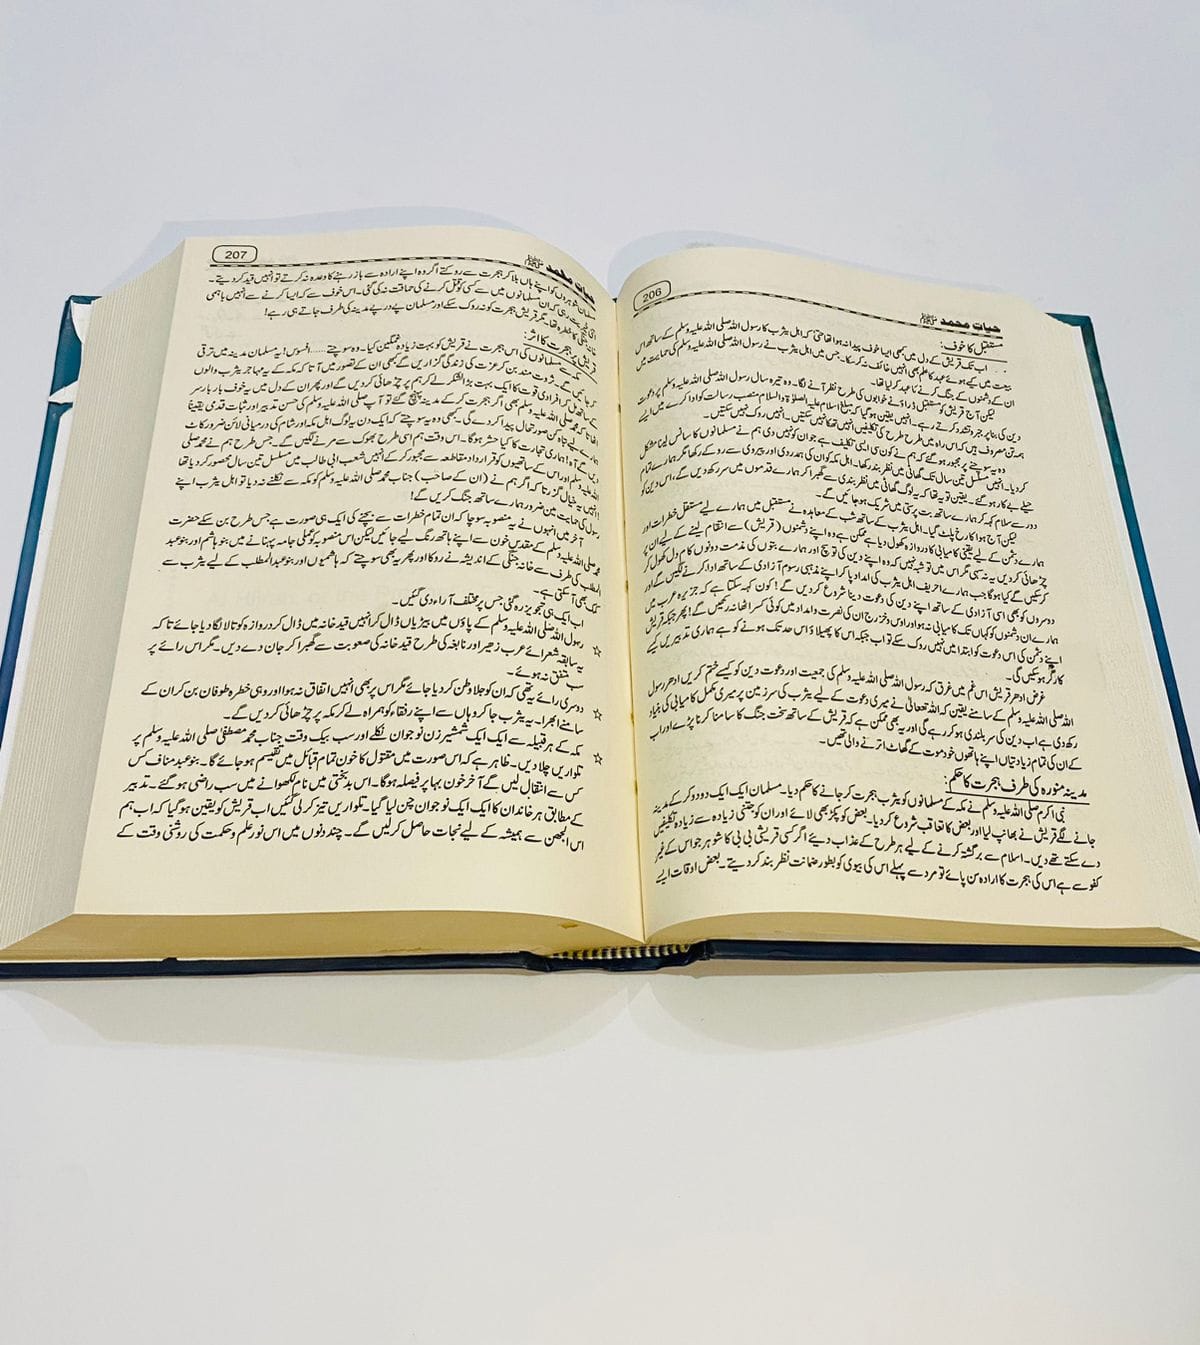 حیات محمد ﷺ
206
مستقبل کا خوف:
اب تک قریش کے دل میں بھی ایسا خوف پیدا نہ ہوا تھا حتیٰ کہ اہل یثرب کا رسول اللہ صلی اللہ علیہ وسلم کے ساتھ اس
بیعت میں کیے ہوئے عہد کا علم بھی انہیں خائف نہ کر سکا۔ جس میں اہل یثرب نے رسول اللہ صلی اللہ علیہ وسلم کی حمایت میں
ان کے دشمنوں کے جنگ کرنے کا عہد کر لیا تھا۔
لیکن آج قریش کو مستقبل ڈراؤنے خوابوں کی طرح نظر آنے لگا۔ وہ تیرہ سال رسول اللہ صلی اللہ علیہ وسلم پر دعوت
دین کی بنا پر جبر و تشدد کرتے رہے۔ انہیں یقین ہو گیا کہ مبلغ اسلام علیہ الصلوٰۃ والسلام منصب رسالت کو ادا کرنے میں ایسے
ہمہ تن مصروف ہیں کہ اس راہ میں طرح طرح کی تکلیفیں انہیں تھکا نہیں سکتیں۔ انہیں روک نہیں سکتیں۔
وہ یہ سوچنے پر مجبور ہو گئے کہ ہم نے کون سی ایسی تکلیف ہے جو ان کو نہیں دی ہم نے مسلمانوں کا سانس لینا مشکل
کر دیا۔ انہیں مسلسل تین سال تک گھاٹی میں نظر بند رکھا۔ اہل مکہ کو ان کی ہمدردی اور پیروی سے روکے رکھا مگر ہمارے تمام
حیلے بے کار ہو گئے۔ یقین تو یہ تھا کہ یہ لوگ گھاٹی میں نظر بندی سے گھبرا کر ہمارے قدموں میں سر رکھ دیں گے، اس دین کو
دور سے سلام کہہ کر ہمارے ساتھ بت پرستی میں شریک ہو جائیں گے۔
لیکن آج ہوا کا رخ پلٹ گیا۔ اہل یثرب کے ساتھ شب کے معاہدہ نے مستقبل میں ہمارے لیے مستقل خطرات اور
ہمارے دشمن کے لیے یقینی کامیابی کا دروازہ کھول دیا ہے ممکن ہے وہ اپنے دشمنوں (قریش) سے انتقام لینے کے لیے ان پر
چڑھائی کر دیں یہ نہ سہی مگر اس میں تو شبہ نہیں کہ وہ اپنے دین کی توسیع اور ہمارے بتوں کی مذمت دونوں کام دل کھول کر
کر سکیں گے کیا ہوگا جب ہمارے حریف اہل یثرب کی امداد پا کر اپنے مذہبی رسوم آزادی کے ساتھ ادا کرنے لگیں گے اور
دوسروں کو بھی اسی آزادی کے ساتھ اپنے دین کی دعوت دینا شروع کر دیں گے! کون کہہ سکتا ہے کہ جزیرہ عرب میں
ہمارے ان دشمنوں کو کہاں تک کامیابی نہ ہو اور اوس و خزرج ان کی نصرت و امداد میں کوئی کسر اٹھا نہ رکھیں گے! پھر جبکہ قریش
اپنے دشمن کی اس دعوت کو ابتدا میں نہیں روک سکے تو اب جبکہ اس کا پھیلاؤ اس حد تک ہونے کو ہے ہماری تدبیریں کیسے
کارگر ہو سکیں گی۔
غرض ادھر قریش اس غم میں غرق کہ رسول اللہ صلی اللہ علیہ وسلم کی جمعیت اور دعوت دین کو کیسے ختم کریں ادھر رسول
اللہ صلی اللہ علیہ وسلم کے سامنے یقین کہ اللہ تعالیٰ نے میری دعوت کے لیے یثرب کی سرزمین پر میری مکمل کامیابی کی بنیاد
رکھ دی ہے اب دین کی سربلندی ہو کر رہے گی اور یہ بھی ممکن ہے کہ قریش کے ساتھ سخت جنگ کا سامنا کرنا پڑے اور اب
کے ان کی تمام زیادتیاں اپنے ہاتھوں خود موت کے گھاٹ اترنے والی تھیں۔
مدینہ منورہ کی طرف ہجرت کا حکم:
نبی اکرم صلی اللہ علیہ وسلم نے مکہ کے مسلمانوں کو یثرب ہجرت کر جانے کا حکم دیا۔ مسلمان ایک ایک دو دو کر کے مدینہ
جانے لگے قریش نے بھانپ لیا اور بعض کا تعاقب شروع کر دیا۔ بعض کو پکڑ بھی لائے اور ان کو جتنی زیادہ سے زیادہ تکلیفیں
دے سکتے تھے دیں۔ اسلام سے برگشتہ کرنے کے لیے ہر طرح کے عذاب دیئے اگر کسی قریشی بی بی کا شوہر جو اس کے غیر
کفو سے ہے اس کی ہجرت کا ارادہ سن پائے تو مرد سے پہلے اس کی بیوی کو بطور ضمانت نظر بند کر دیتے۔ بعض اوقات ایسے
حیات محمد ﷺ
207
مسلمان شوہروں کو اپنے ہاں بلا کر ہجرت سے روکتے اگر وہ اپنے ارادہ سے باز رہنے کا وعدہ نہ کرتے تو انہیں قید کر دیتے۔
اتنی خیریت رہی کہ ان مسلمانوں میں سے کسی کو قتل کرنے کی حماقت نہ کی گئی۔ اس خوف سے کہ ایسا کرنے سے انہیں باہمی
خانہ جنگی کا خطرہ تھا۔ مگر قریش ہجرت کو نہ روک سکے اور مسلمان پے در پے مدینہ کی طرف جاتے ہی رہے!
قریش پر ہجرت کا اثر:
مکہ سے مسلمانوں کی اس ہجرت نے قریش کو بہت زیادہ غمگین کیا۔ وہ سوچتے ...... افسوس! یہ مسلمان مدینہ میں ترقی
کر جائیں گے۔ ثروت مند بن کر عزت کی زندگی گزاریں گے کبھی ان کے تصور میں آتا کہ مکہ کے یہ مہاجر یثرب والوں
کے ساتھ مل کر افرادی قوت کا ایک بہت بڑا لشکر لے کر ہم پر چڑھائی کر دیں گے اور پھر ان کے دل میں یہ خوف بار بار سر
اٹھاتا کہ محمد صلی اللہ علیہ وسلم بھی اگر ہجرت کر کے مدینہ پہنچ گئے تو آپ صلی اللہ علیہ وسلم کی حسن تدبیر اور ثبات قدمی یقیناً
ہمارے لیے تباہ کن صورتحال پیدا کر دے گی۔ کبھی وہ یہ سوچتے کہ ایک دن یہ لوگ اہل مکہ اور شام کی درمیانی لائن ضرور کاٹ
دیں گے آہ! ہماری تجارت کا کیا حشر ہوگا۔ اس وقت ہم اسی طرح بھوک سے مرنے لگیں گے۔ جس طرح ہم نے محمد صلی
اللہ علیہ وسلم اور اس کے ساتھیوں کو قرارداد مقاطعہ سے مجبور کر کے انہیں شعب ابی طالب میں مسلسل تین سال محصور کر دیا تھا
انہیں یہ خیال گزرتا کہ اگر ہم نے (ان کے صاحب) جناب محمد صلی اللہ علیہ وسلم کو مکہ سے نکلنے نہ دیا تو اہل یثرب اپنے
رسول کی حمایت میں ضرور ہمارے ساتھ جنگ کریں گے!
آخر میں انہوں نے یہ منصوبہ سوچا کہ ان تمام خطرات سے بچنے کی ایک ہی صورت ہے جس طرح بن سکے حضرت
محمد صلی اللہ علیہ وسلم کے مقدس خون سے اپنے ہاتھ رنگ لیے جائیں لیکن اس منصوبہ کو عملی جامہ پہنانے میں بنو ہاشم اور بنو عبد
المطلب کی طرف سے خانہ جنگی کے اندیشہ نے روکا اور پھر یہ بھی سوچتے کہ ہاشمیوں اور بنو عبدالمطلب کے لیے یثرب سے
کمک بھی آ سکتی ہے۔
اب ایک ہی تجویز رہ گئی جس پر مختلف آراء دی گئیں۔
☆ رسول اللہ صلی اللہ علیہ وسلم کے پاؤں میں بیڑیاں ڈال کر انہیں قید خانہ میں ڈال کر دروازہ کو تالا لگا دیا جائے تا کہ
یہ سابقہ شعرائے عرب زہیر اور نابغہ کی طرح قید خانہ کی صعوبت سے گھبرا کر جان دے دیں۔ مگر اس رائے پر
سب متفق نہ ہوئے۔
☆ دوسری رائے یہ تھی کہ ان کو جلا وطن کر دیا جائے مگر اس پر بھی انہیں اتفاق نہ ہوا اور وہی خطرہ طوفان بن کر ان کے
سامنے ابھرا۔ یہ یثرب جا کر وہاں سے اپنے رفقاء کو ہمراہ لے کر مکہ پر چڑھائی کر دیں گے۔
☆ مکہ کے ہر قبیلہ سے ایک ایک شمشیر زن نوجوان نکلے اور سب بیک وقت جناب محمد مصطفیٰ صلی اللہ علیہ وسلم پر
تلواریں چلا دیں۔ ظاہر ہے کہ اس صورت میں مقتول کا خون تمام قبائل میں تقسیم ہو جائے گا۔ بنو عبد مناف کس
کس سے انتقال لیں گے آخر خون بہا پر فیصلہ ہوگا۔ اس بدبختی میں نام لکھوانے میں سب راضی ہو گئے۔ تدبیر
کے مطابق ہر خاندان کا ایک ایک نوجوان چن لیا گیا۔ تلواریں تیز کر لی گئیں اب قریش کو یقین ہو گیا کہ اب ہم
اس الجھن سے ہمیشہ کے لیے نجات حاصل کر لیں گے۔ چند دنوں میں اس نور علم و حکمت کی روشنی وقت کے